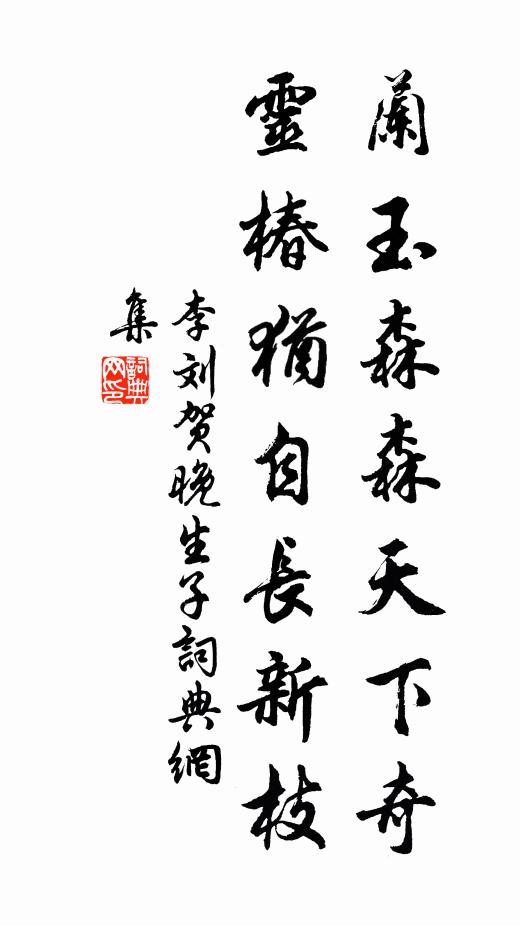 蘭玉森森天下奇
靈椿猶自長新枝
李刘贺晚生子詞典網
集
詞典
网印